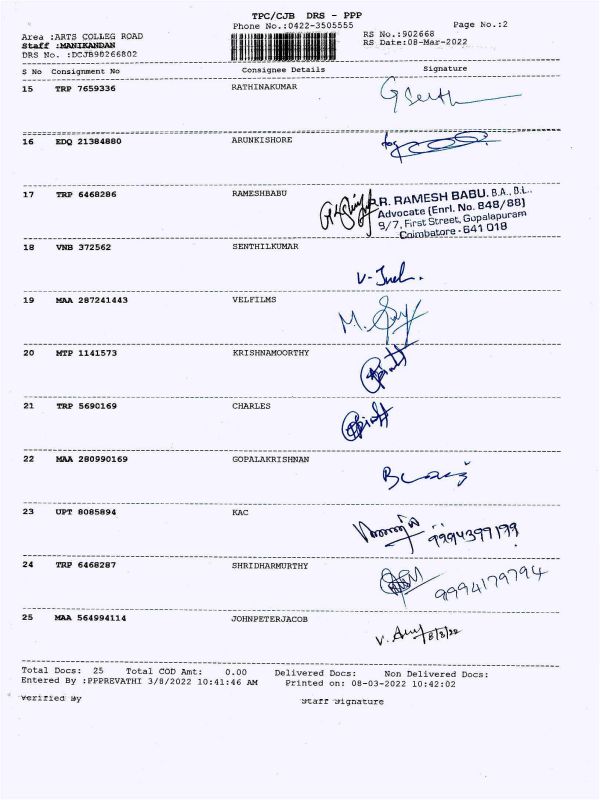 TPC/CJB DRS - PPP
Phone No.:0422-3505555
Page No.:2
Area :ARTS COLLEG ROAD
RS No.:902668
Staff :MANIKANDAN
RS Date:08-Mar-2022
DRS No. :DCJB90266802
S No Consignment No Consignee Details Signature
15 TRP 7659336 RATHINAKUMAR
16 EDQ 21384880 ARUNKISHORE
17 TRP 6468286 RAMESHBABU
R. RAMESH BABU, B.A., B.L.,
Advocate (Enrl. No. 848/88)
9/7, First Street, Gopalapuram
Coimbatore - 641 018
18 VNB 372562 SENTHILKUMAR
19 MAA 287241443 VELFILMS
20 MTP 1141573 KRISHNAMOORTHY
21 TRP 5690169 CHARLES
22 MAA 280990169 GOPALAKRISHNAN
23 UPT 8085894 KAC
9994399199
24 TRP 6468287 SHRIDHARMURTHY
9994179794
25 MAA 564994114 JOHNPETERJACOB
8/3/22
Total Docs: 25 Total COD Amt: 0.00 Delivered Docs: Non Delivered Docs:
Entered By :PPPREVATHI 3/8/2022 10:41:46 AM Printed on: 08-03-2022 10:42:02
Verified By Staff Signature